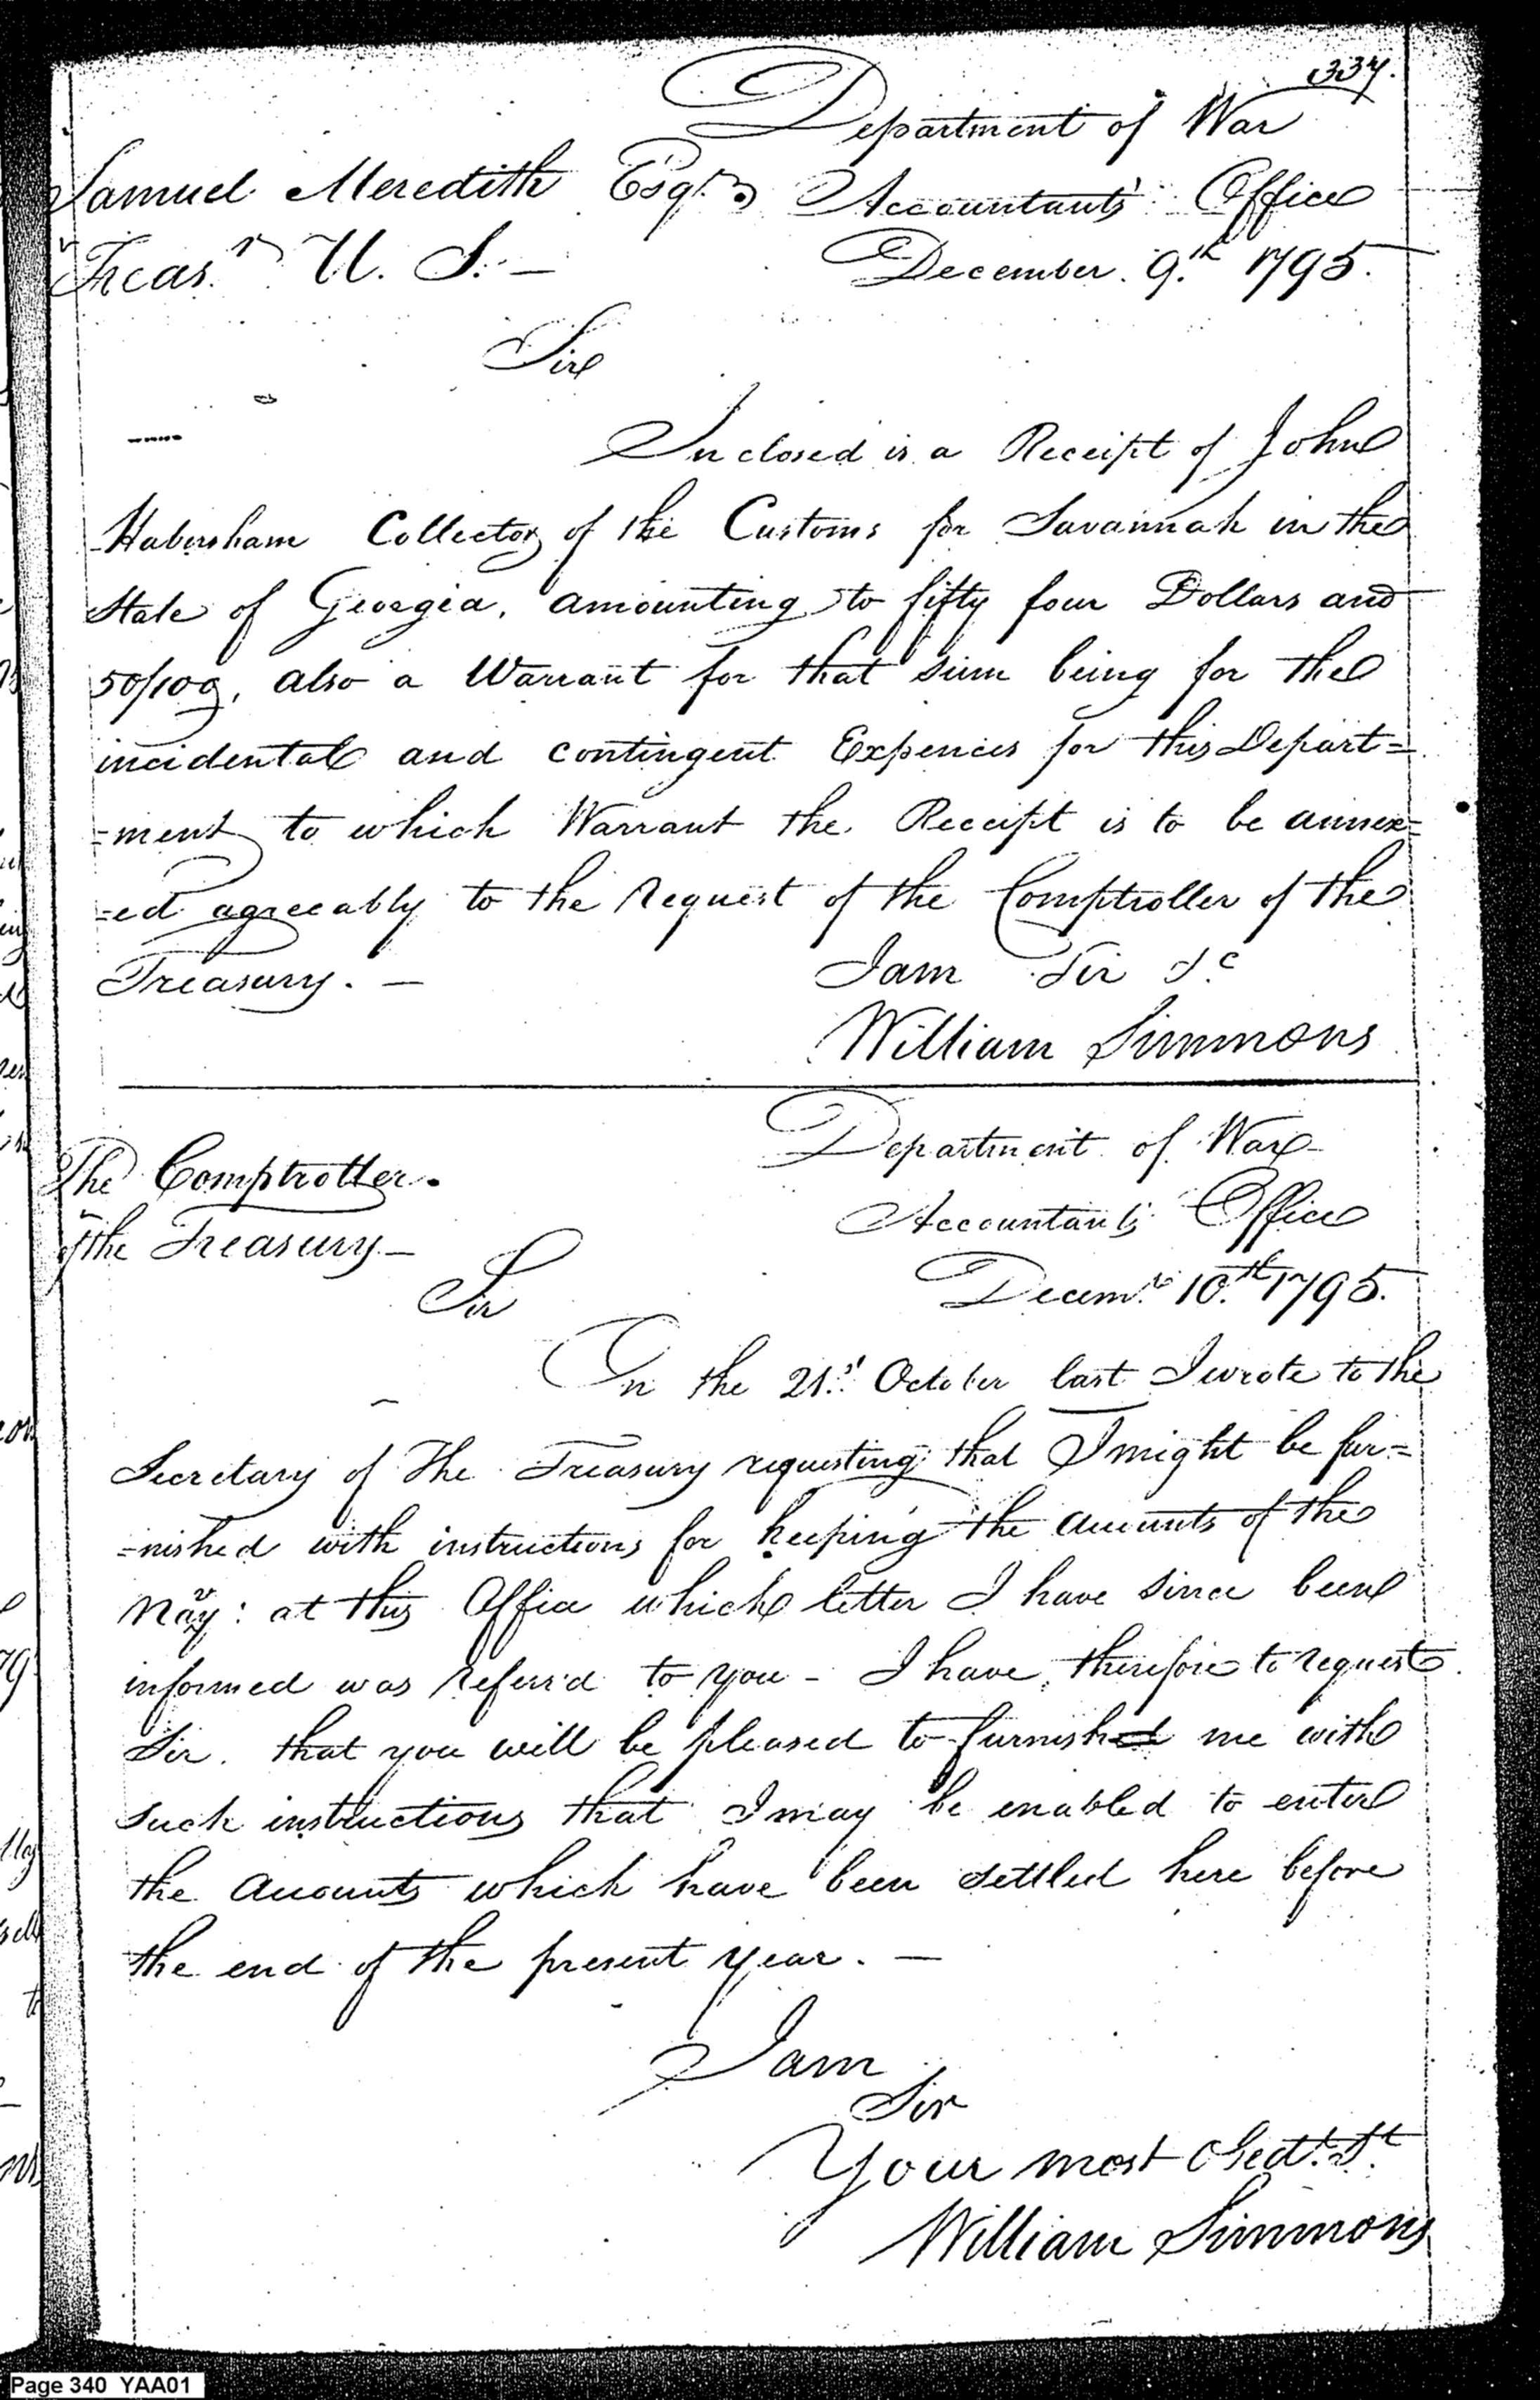 337.
Department of War
Samuel Meredith Esqr. Accountant's Office
Treasr. U. S. — December 9.th 1795.
Sir
Inclosed is a Receipt of John
Habersham Collector of the Customs for Savannah in the
State of Georgia, amounting to fifty four Dollars and
50/100, also a Warrant for that sum being for the
incidental and contingent Expences for this Depart=
=ment to which Warrant the Receipt is to be annex=
=ed agreeably to the request of the Comptroller of the
Treasury. — I am Sir &c
William Simmons
Department of War
The Comptroller.
Accountant's Office
of the Treasury —
Sir Decemr. 10.th 1795.
On the 21.st October last I wrote to the
Secretary of the Treasury requesting that I might be fur=
=nished with instructions for keeping the Accounts of the
Navy: at this Office which letter I have since been
informed was referr'd to you – I have, therefore to request
Sir. that you will be pleased to furnish me with
such instructions that I may be enabled to enter
the Accounts which have been settled here before
the end of the present year. —
I am
Sir
Your most Obedt. St.
William Simmons
Page 340 YAA01